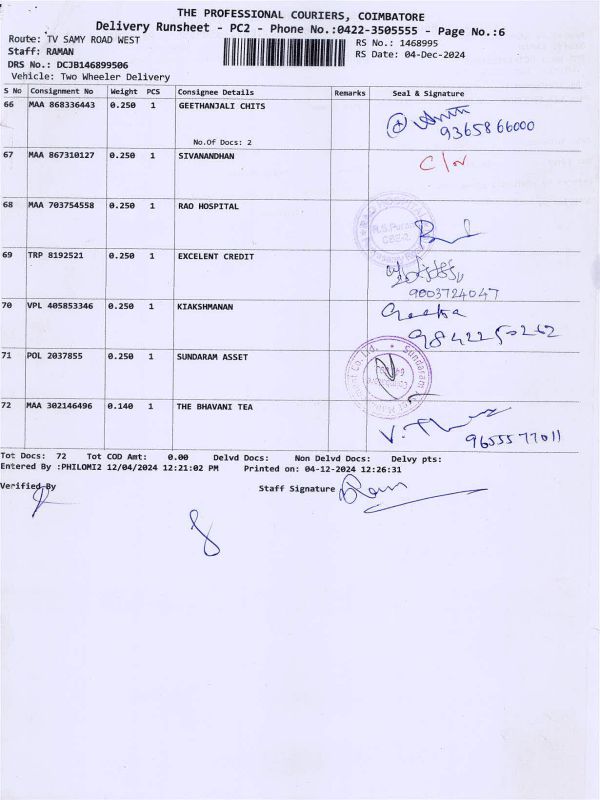 THE PROFESSIONAL COURIERS, COIMBATORE
Delivery Runsheet - PC2 - Phone No.:0422-3505555 - Page No.:6
Route: TV SAMY ROAD WEST
RS No.: 1468995
Staff: RAMAN
RS Date: 04-Dec-2024
DRS No.: DCJB146899506
Vehicle: Two Wheeler Delivery
S No Consignment No Weight PCS Consignee Details Remarks Seal & Signature
66 MAA 868336443 0.250 1 GEETHANJALI CHITS
9365866000
No.Of Docs: 2
67 MAA 867310127 0.250 1 SIVANANDHAN
68 MAA 703754558 0.250 1 RAO HOSPITAL
R.S.Puram
69 TRP 8192521 0.250 1 EXCELENT CREDIT
9003724047
70 VPL 405853346 0.250 1 KIAKSHMANAN
Geetha
9842250262
71 POL 2037855 0.250 1 SUNDARAM ASSET
Sundaram
72 MAA 302146496 0.140 1 THE BHAVANI TEA
9655577011
Tot Docs: 72 Tot COD Amt: 0.00 Delvd Docs: Non Delvd Docs: Delvy pts:
Entered By :PHILOMI2 12/04/2024 12:21:02 PM Printed on: 04-12-2024 12:26:31
Verified By Staff Signature